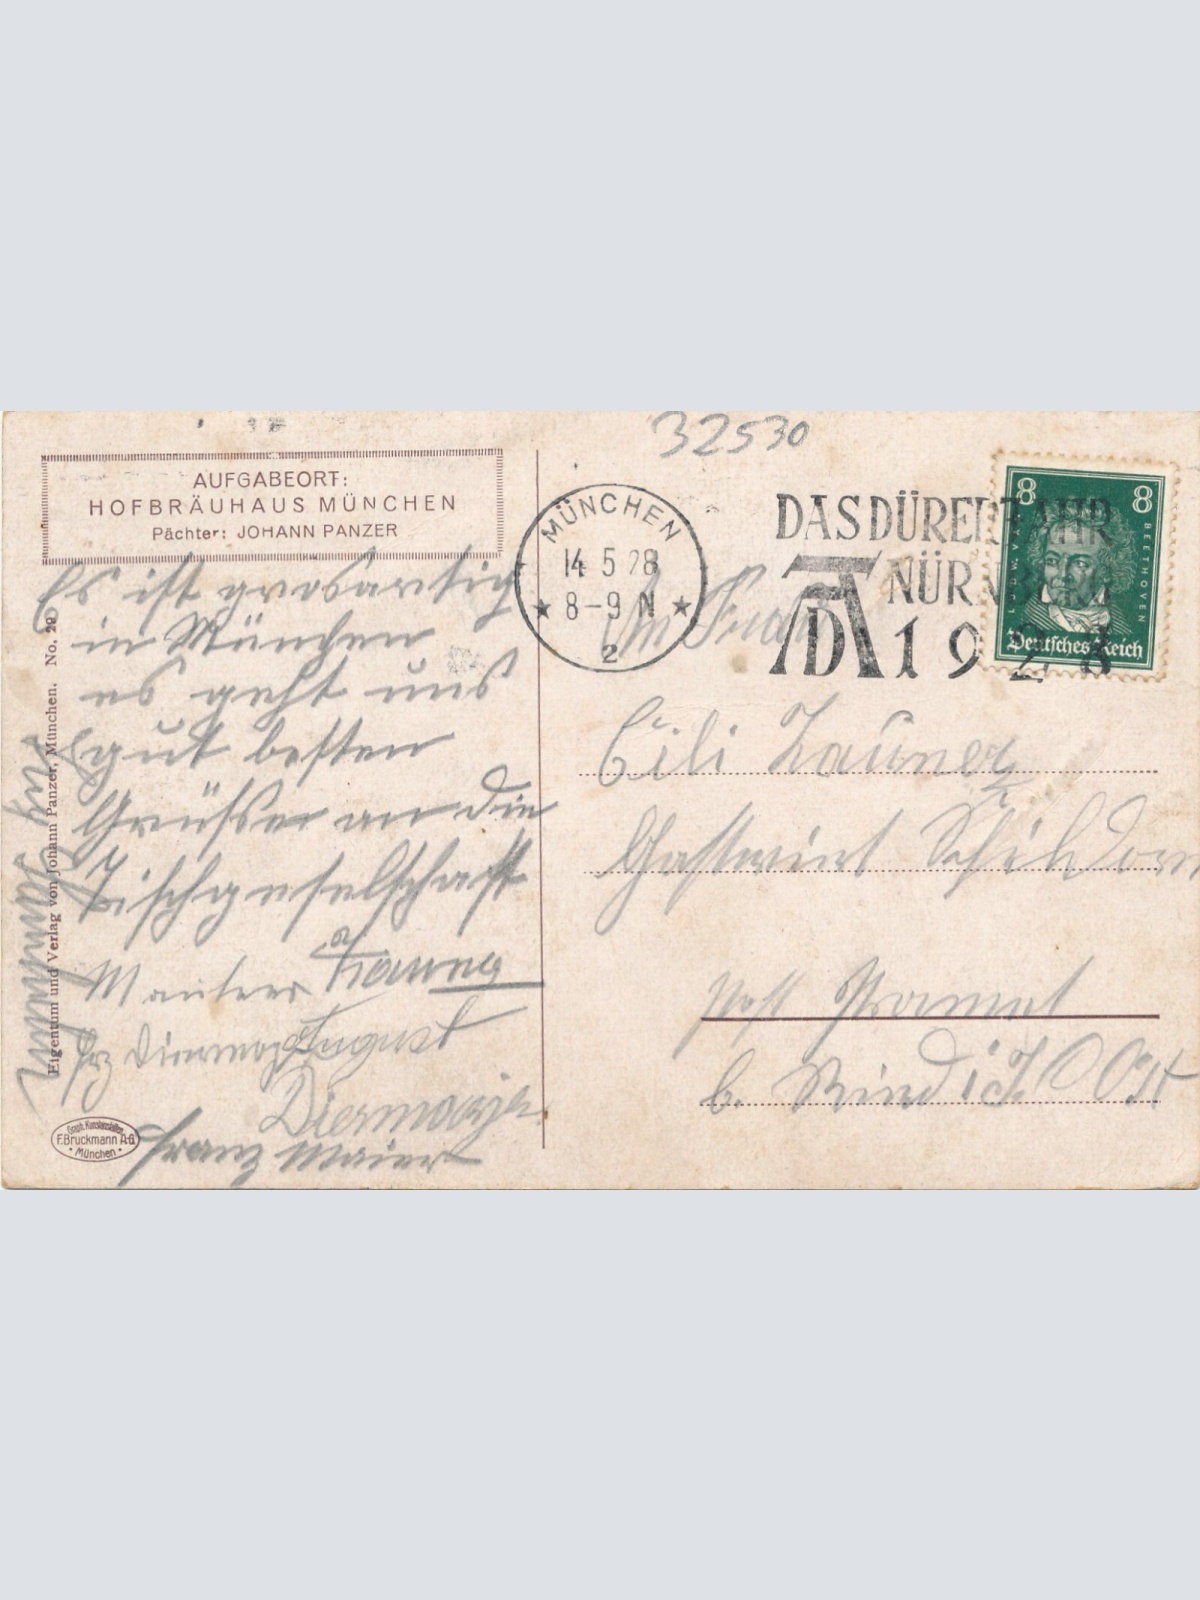 32530
AUFGABEORT:
HOFBRÄUHAUS MÜNCHEN
Pächter: JOHANN PANZER
Es ist grosartig
in München
es geht uns
gut besten
Grüsse an die
Tischgeselschaft
Franz Maier
August
Eigentum und Verlag von Johann Panzer, München. No. 29
Graph. Kunstanstalten
F. Bruckmann A-G
• München •
MÜNCHEN
14 5 28
8-9 N
2
DAS DÜRER JAHR
NÜRNBERG
1928
8 8
LUDW. VAN BEETHOVEN
Deutsches Reich
An Frau
Cili Zauner
Gastwirt Schildorn
Post Pramet
b. Ried i. I. O Öst